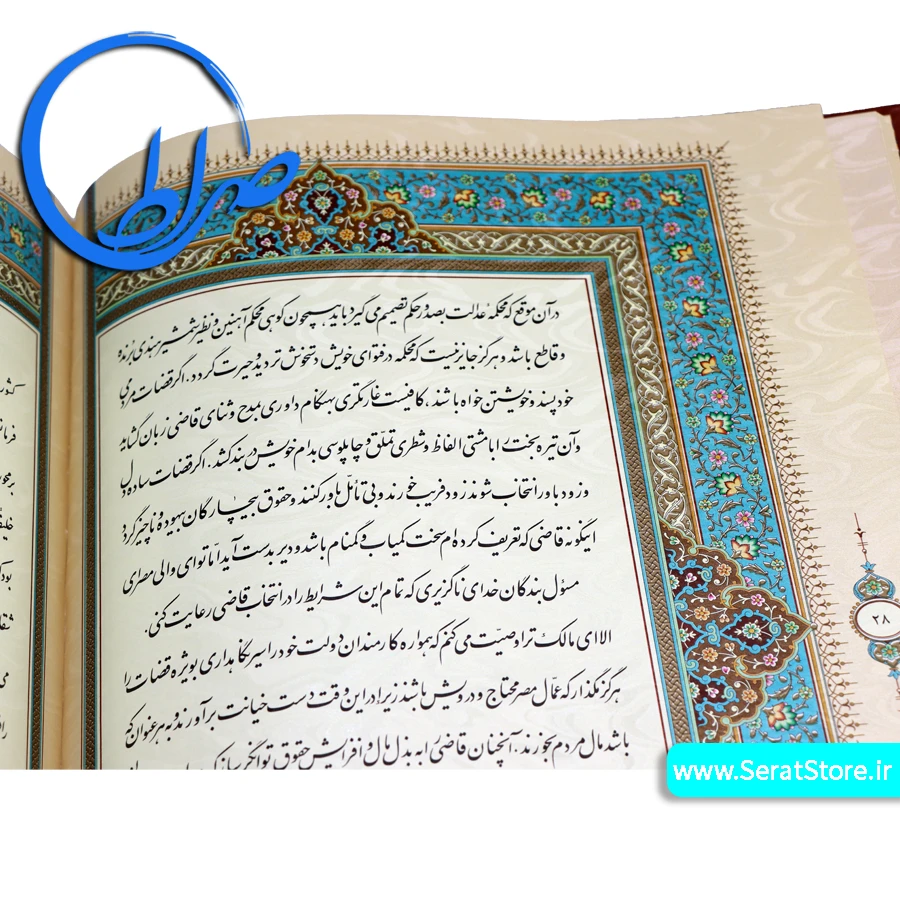 صراط
در آن موقع که محکمه عدالت بصدور حکم تصمیم می گیرد باید همچون کوهی محکم آهنین و نظیر شمشیر هندی برنده
و قاطع باشد و هرگز جایز نیست که محکمه در فتوای خویش دستخوش تردید و حیرت گردد. اگر قضات مردمی
خودپسند و خویشتن خواه باشند، کافیست غارتگری بهنگام داوری بمدح و ثنای قاضی زبان گشاید
و آن تیره بخت را با مشتی الفاظ و شطری تملق و چاپلوسی بدام خویش در بند کشد. اگر قضات ساده دل
و زودباور انتخاب شوند زود فریب خورند و بی تأمل باور کنند و حقوق بیچارگان بیهوده و ناچیز گردد
اینگونه قاضی که تعریف کرده ام سخت کمیاب و گمنام باشد و دیر بدست آید اما تو ای والی مصر ای
مسؤل بندگان خدای ناگزیری که تمام این شرایط را در انتخاب قاضی رعایت کنی.
الا ای مالک ترا وصیت می کنم که همواره کارمندان دولت خود را سیر نگاهداری بویژه قضات را
هرگز مگذار که عمال مصر محتاج و درویش باشند زیرا در این وقت دست خیانت برآورند و به هر عنوان که
باشد مال مردم بخورند. آنچنان قاضی را به بذل مال و افزایش حقوق توانگر
۲۸
www.SeratStore.ir